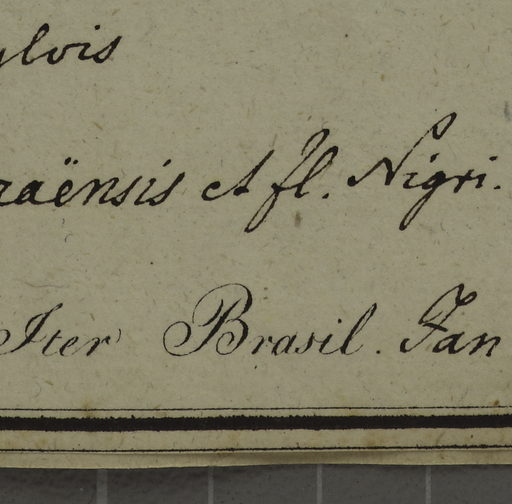 ylvis
raënsis et fl. Nigri.
Iter Brasil. Jan